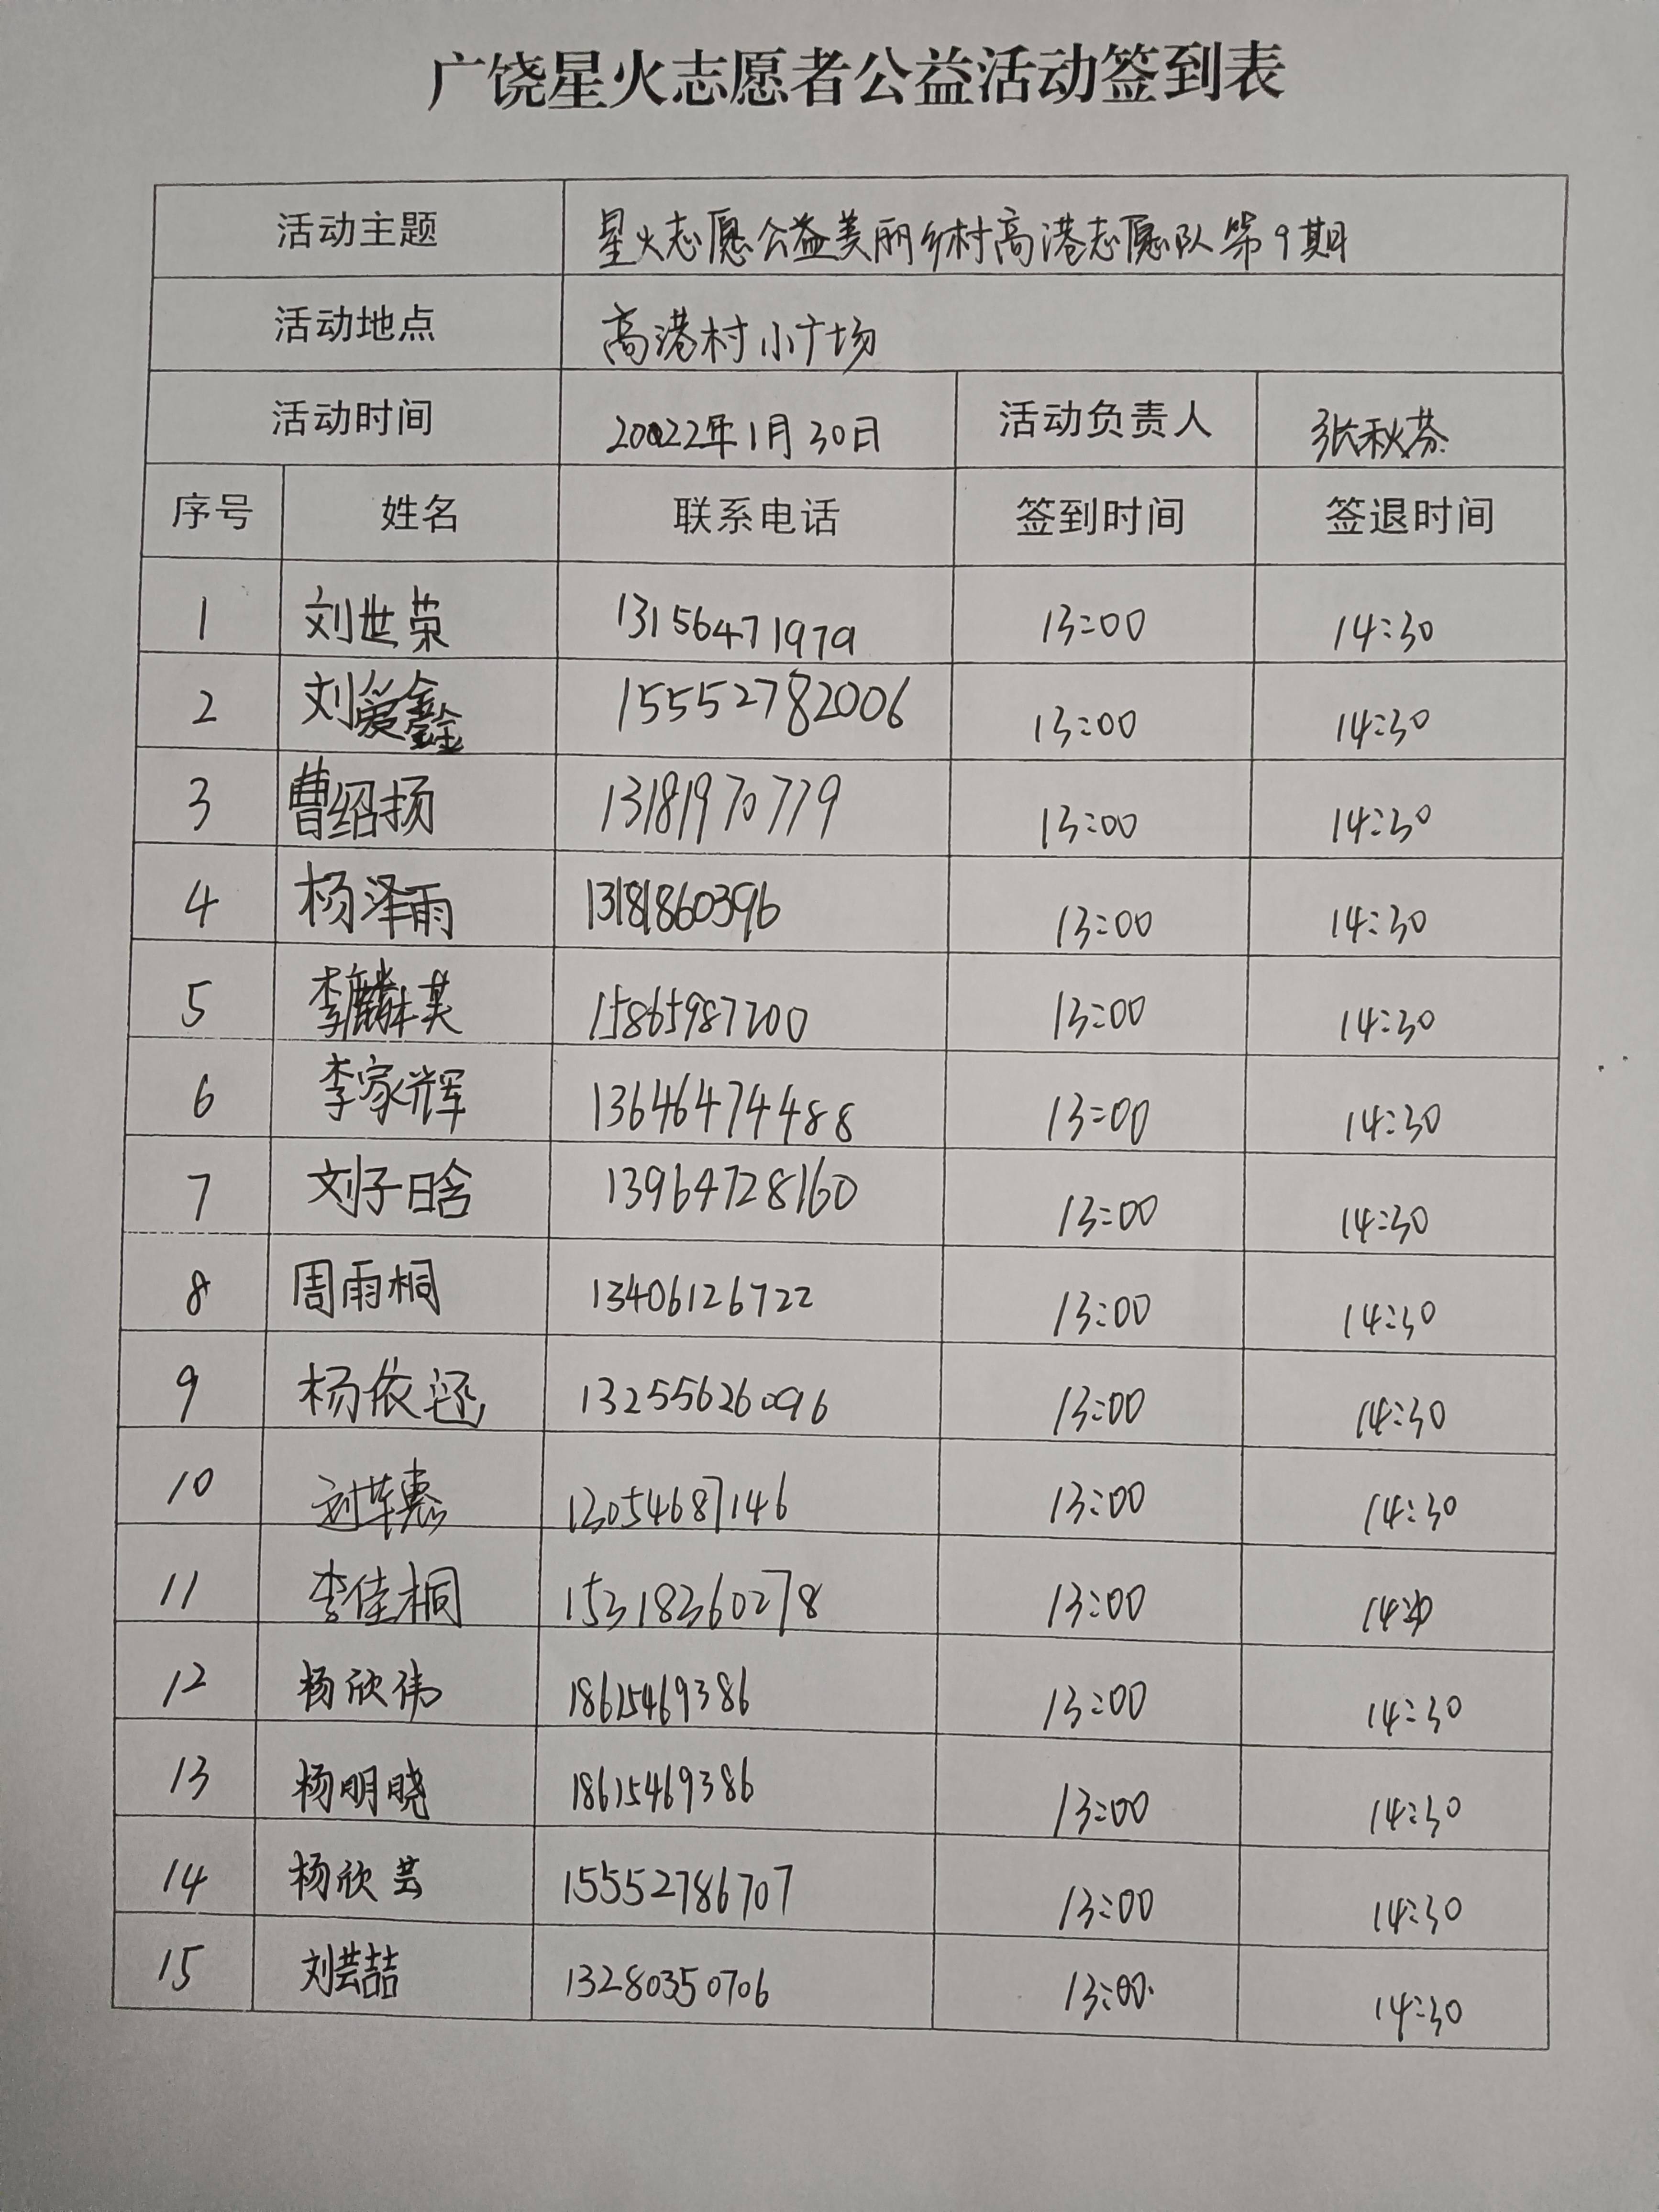 广饶星火志愿者公益活动签到表
活动主题 星火志愿公益美丽乡村高港志愿队第9期
活动地点 高港村小广场
活动时间 20022年1月30日 活动负责人 张秋芬
序号 姓名 联系电话 签到时间 签退时间
1 刘世荣 13156471979 13:00 14:30
2 刘爱鑫 15552782006 13:00 14:30
3 曹绍扬 13181970779 13:00 14:30
4 杨泽雨 13181860396 13:00 14:30
5 李麟其 15865987200 13:00 14:30
6 李家辉 13646474488 13:00 14:30
7 刘子晗 13964728160 13:00 14:30
8 周雨桐 13406126722 13:00 14:30
9 杨依 13255626096 13:00 14:30
10 刘苹惠 13054687146 13:00 14:30
11 李佳桐 15318360278 13:00 14:30
12 杨欣伟 18615469386 13:00 14:30
13 杨明晓 18615469386 13:00 14:30
14 杨欣芸 15552786707 13:00 14:30
15 刘芸喆 13280350706 13:00 14:30